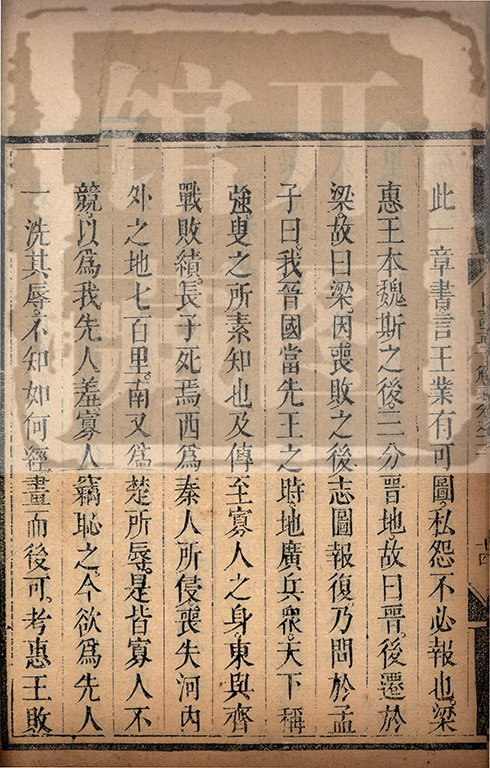 此一章書言王業有可圖。私怨不必報也。梁
惠王本魏斯之後。三分晉地。故曰晉。後遷於
梁。故曰梁。因喪敗之後。志圖報復。乃問於孟
子曰。我晉國當先王之時。地廣兵衆。天下稱
強。叟之所素知也。及傳至寡人之身。東與齊
戰敗績。長子死焉。西為秦人所侵。喪失河內
外之地七百里。南又為楚所辱。是皆寡人不
競。以為我先人羞。寡人竊恥之。今欲為先人
一洗其辱。不知如何經畫而後可。考惠王敗